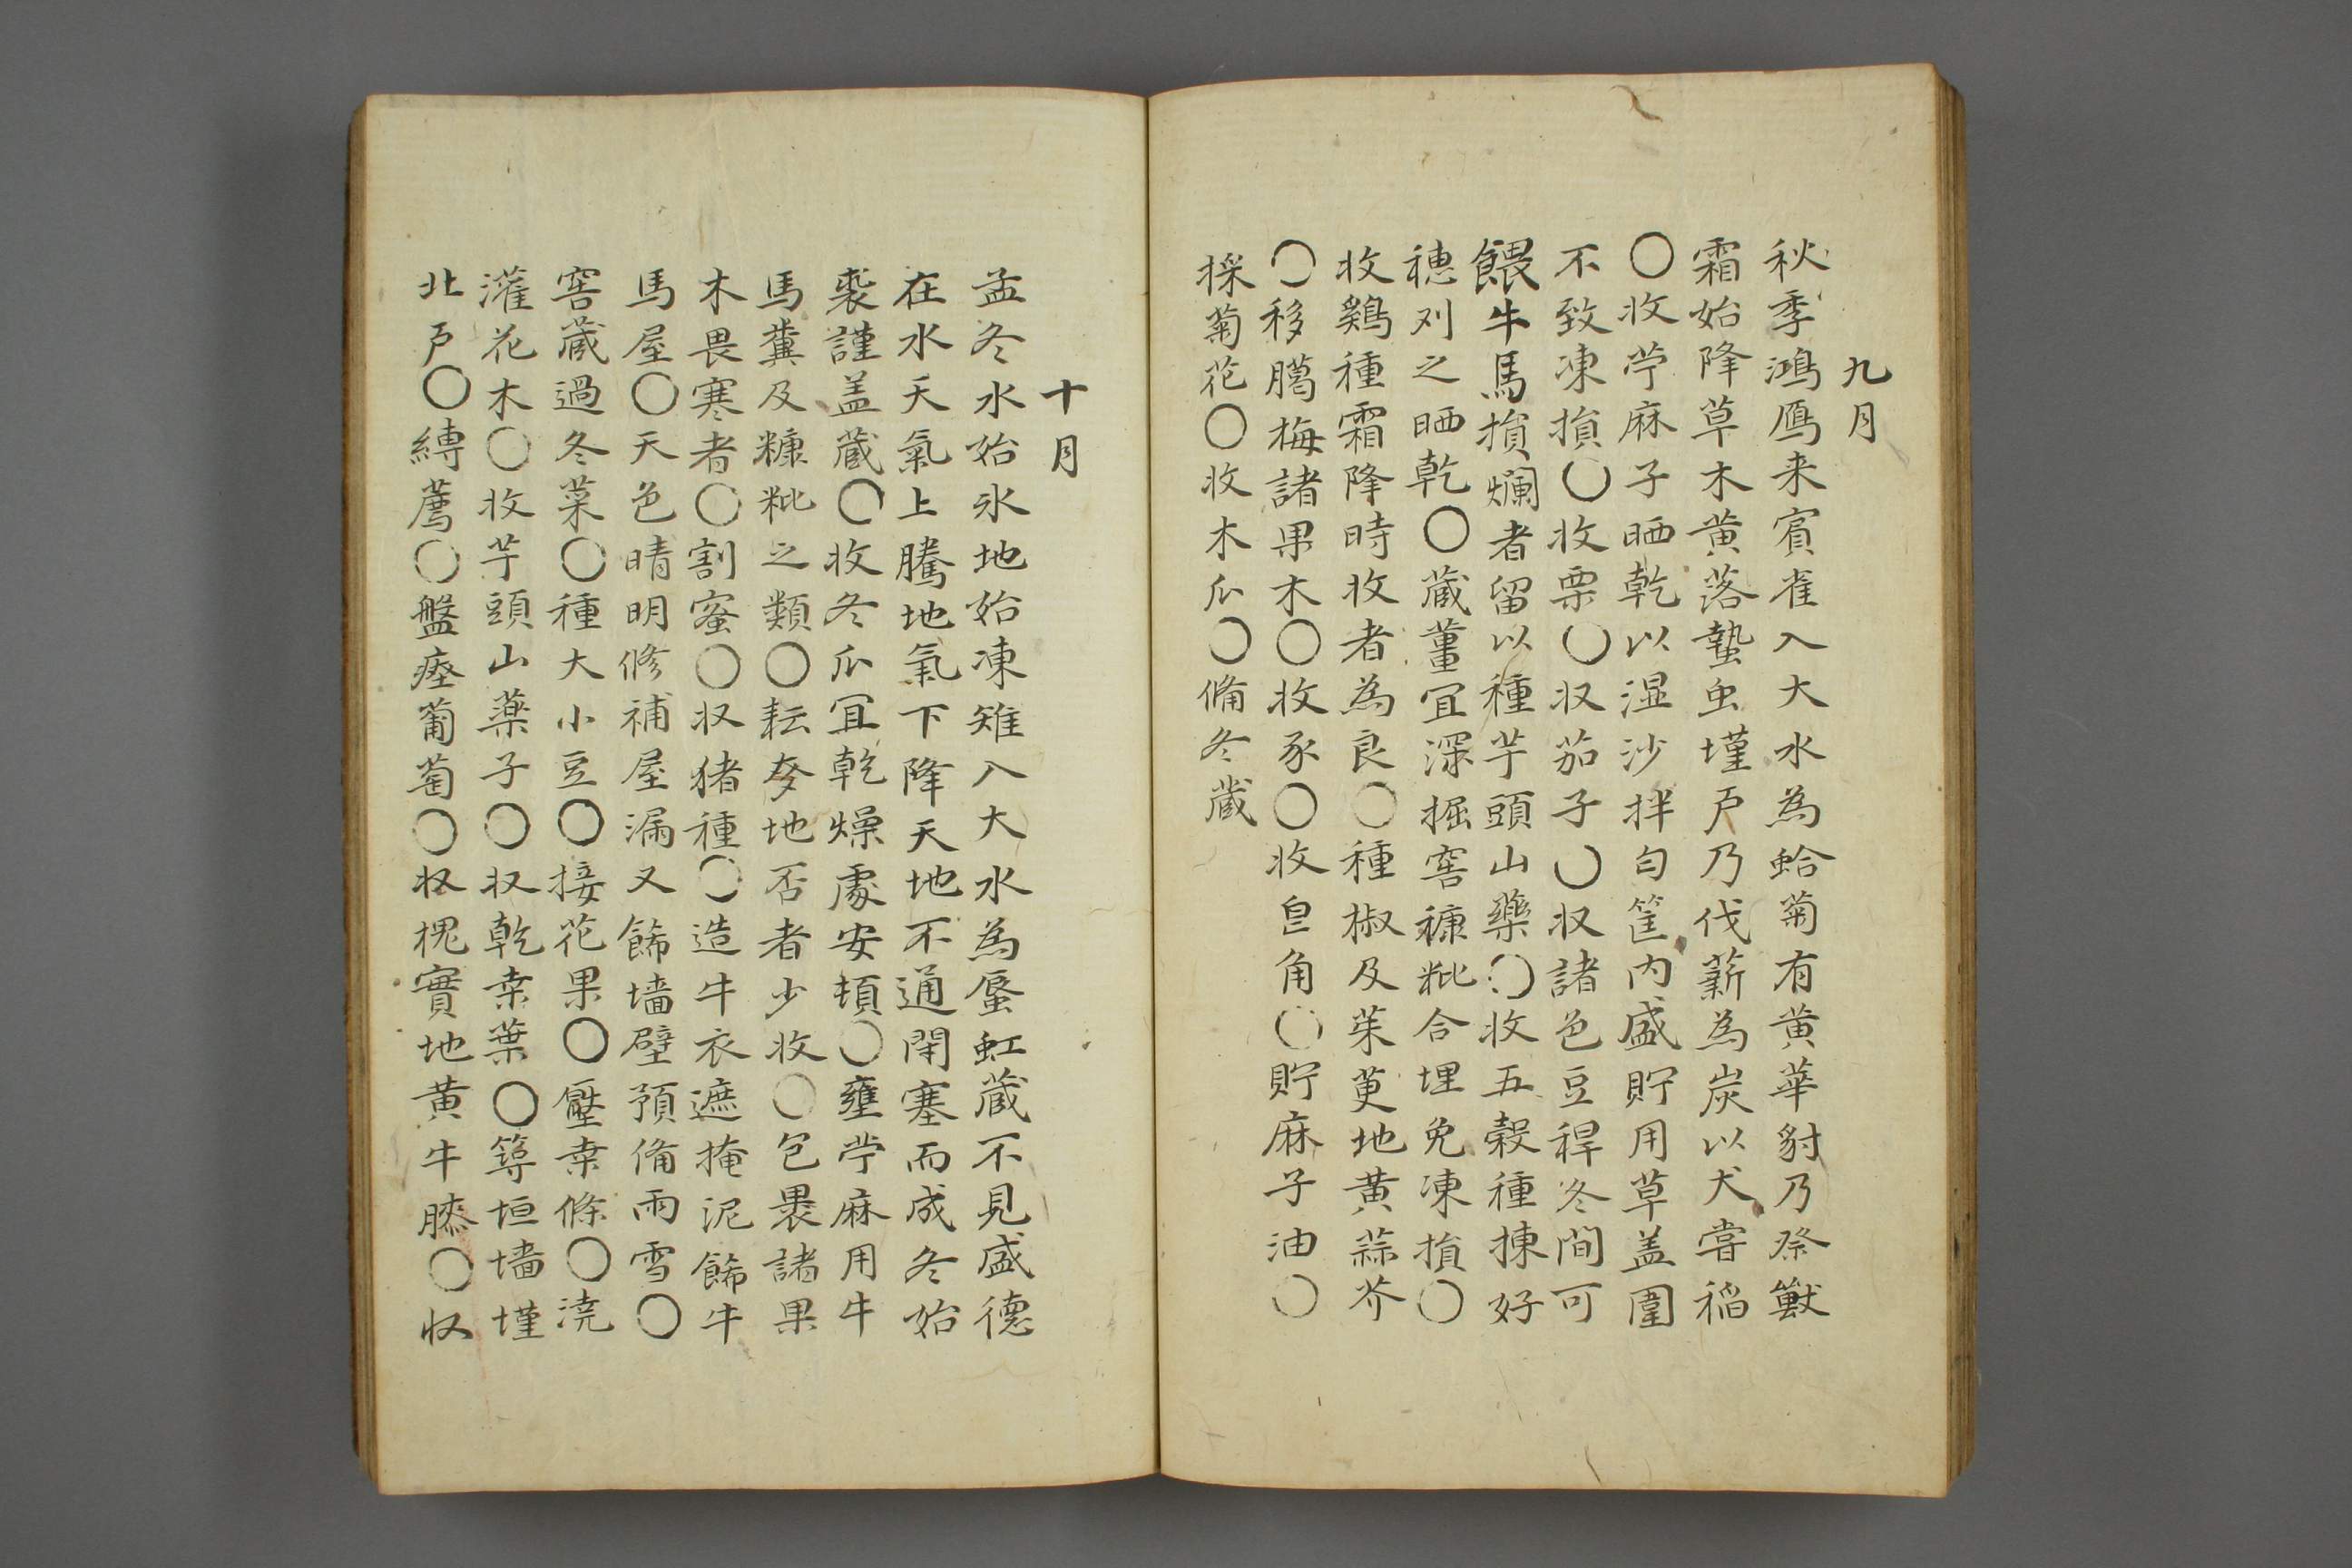 九月
秋季鴻鴈来賓雀入大水為蛤菊有黄華豺乃祭獸
霜始降草木黄落蟄虫墐戸乃伐薪為炭以犬嘗稲
〇收苧麻子晒乾以湿沙拌匀筐内盛貯用草盖圍
不致凍損〇收栗〇収茄子〇収諸色豆稈冬間可
餵牛馬損爛者留以種芋頭山藥〇收五穀種揀好
穂刈之晒乾〇蔵薑冝深掘窖糠粃合埋免凍損〇
收鷄種霜降時收者為良〇種椒及茱萸地黄蒜芥
〇移臈梅諸果木〇收豕〇收皀角〇貯麻子油〇
採菊花〇收木瓜〇俻冬蔵
十月
孟冬水始氷地始凍雉入大水為蜃虹蔵不見盛德
在水天氣上騰地氣下降天地不通閉塞而成冬始
裘謹盖蔵〇收冬瓜冝乾燥處安頓〇壅苧麻用牛
馬糞及糠粃之類〇耘麥地否者少收〇包褁諸果
木畏寒者〇割蜜〇収猪種〇造牛衣遮掩泥餙牛
馬屋〇天色晴明修補屋漏又餙墻壁預俻雨雪〇
窖蔵過冬菜〇種大小豆〇接花果〇壓桒條〇澆
灌花木〇收芋頭山薬子〇収乾桒葉〇築垣墻墐
北戸〇縳薦〇盤瘞葡萄〇収槐實地黄牛膝〇収